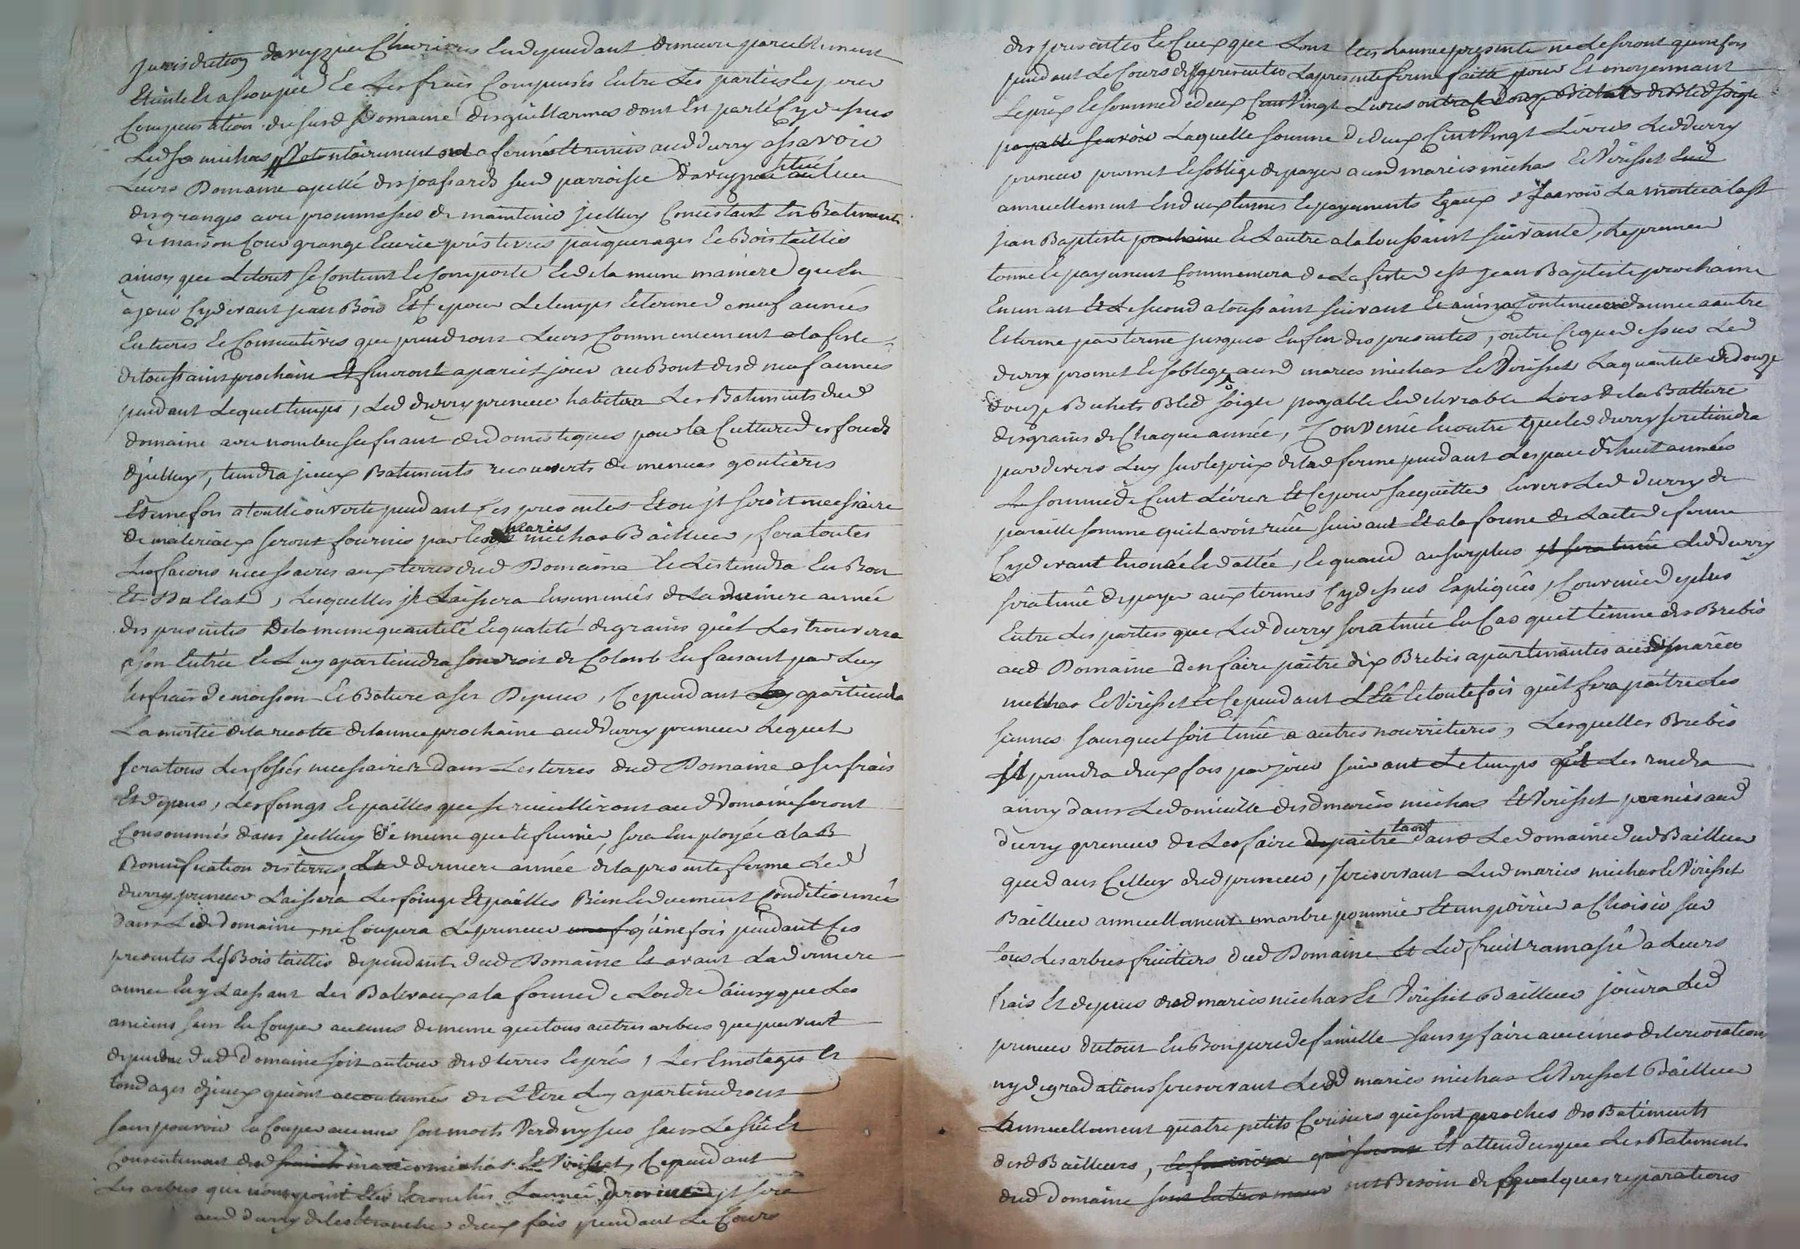 Jurisdiction de veyzieu Chavieres en dependant demeure pareillement
Eteinte Et assoupie Et les frais Compensés Entre Les parties Et pour
Compensation du susd Domaine des guillarmes dont Est parlé Cy dessus
Led Sr michas Volontairement a afermé aud durry assavoir
Leurs Domaine apellé des joassards sur d parroisse situé au lieu
des granges avec prommesses de maintenir jcelluy Concistant En Batiments
de maison Cour grange Ecurie prés terres paquerages Et Bois taillis
ainsy que Le tout se Contient Et Comporte Et de la meme maniere qu'en
a joui Cy devant jean Et Ce pour Le temps Et terme de neuf années
Entieres Et Consecutives que prendront Leurs Commencement a la feste
de toussaint prochaine Et finiront a pareil jour au Bout desd neuf années
pendant Lequel temps, Led durry preneur habitera Les Batiments dud
domaine avec nombre sufisant de domestiques pour la Culture des fonds
d'jcelluy, tiendra jceux Batiments recouverts de menues goutieres
Et une fois a toulle ouverte pendant Ces presentes Et ou jl seroit necessaire
de materiaux seront fournis par Lesd maries michas Bailleur, fera toutes
Les facons necessaires aux terres dud Domaine Et Les tiendra En Bon
Et Du Etat, Lesquelles jl Laissera Ensemencés de La derniere année
des presentes De la meme quantité Et qualité de grains qu'il Les trouvera
a son Entrée Et Luy apartiendra son droit de Colomb En faisant par Luy
les frais de moisson Et Bature a ses Depens, Cependant apartiendra
La moitié de la recolte de l'année prochaine aud Durry preneur Lequel
fera tous Les fossés necessaires dans Les terres dud Domaine a ses frais
Et depens, Les foings Et pailles que se recuelliront aud Domaine seront
Consommés dans jcelluy De meme que le fumier, sera Employé a la
Bonnification des terres, Lad derniere année de la presente ferme Led
durry preneur Laissera Les foings Et pailles Bien Et duement Conditionnés
dans Led domaine, ne Coupera Le preneur qu'une fois pendant Ces
presentes Les Bois taillis dependants dud Domaine Et avant La derniere
année En y Laissant des Baliveaux a la forme de Lordre ainsy que Les
anciens sans En Couper aucuns de meme que tous autres arbres que peuvent
dependre dud domaine soit autour desd terres Et prés, Les Emotages Et
tondages d'jceux qui ont accoutumés de L'Etre Luy apartiendront
sans pouvoir En Couper aucuns soit morts Verd ny sec sans Le sçû Et
Consentement desd maries michas Et Voisset, Cependant
Les arbres que Etes Etronchés Lannée jl sera
aud durry de les Etroncher deux fois pendant Le Cours
des presentes Et Ceux que Lont Etés Lannée presente ne Le seront qu'une fois
pendant Le Cours des presentes La presente ferme faitte pour Et moyennant
Le prix Et somme de deux Cent Vingt Livres outre Et douze Bichets de Bled soigle
payable scavoir Laquelle somme de deux Cent Vingt Livres Led durry
preneur promet Et soblige de payer ausd mariés michas Et Voisset
annuellement En deux termes Et payements Egaux scavoir La moitié a la St
jean Baptiste prochaine Et Lautre a la toussaint suivante, Le premier
terme Et payement Commencera de La feste de St jean Baptiste prochaine
En un an Et Le second a toussaint suivant Et ainsy a Continuer d'année a autre
Et terme par terme jusques En fin des presentes, outre Ce que dessus Led
durry promet Et soblige ausd maries michas Et Voisset La quantité de douze
douze Bichets Bled soigle payable Et delivrable Lors de la Batture
des grains de Chaque année, Convenu En outre que led durry se retiendra
par devers Luy sur le prix de lad ferme pendant Lespace de huit années
La somme de Cent Livres Et Ce pour sacquitter Envers Led durry de
pareille somme qu'il avoit reçue suivant Et a la forme de Lacte de ferme
Cy devant Enoncé Et datté, Et quand au surplus jl sera tenu Led durry
sera tenu de payer aux termes Cy dessus Expliqués, Convenu de plus
Entre Les parties que Led durry sera tenu En Cas qu'il tienne des Brebis
aud Domaine d'en faire paitre dix Brebis apartenantes auxd mariés
michas Et Voisset Et Cependant L'Eté Et toutefois qu'il fera paitre Les
siennes sans qu'il soit tenu a autres nourritures, Lesquelles Brebis
jl prendra deux fois par jour suivant Le temps Et Les rendra
ainsy dans Le domicille desd mariés michas Et Voisset permis aud
durry preneur de Les faire paitre tant dans Le domaine dud Bailleur
que dans Celluy dud preneur, se reservant Lesd maries michas Et Voisset
Bailleur annuellement un arbre pommier Et un poirier a Choisir sur
tous Les arbres fruitiers dud Domaine Et Led fruit ramassé a Leurs
frais Et depens desd maries michas Et Voisset Bailleur jouira Led
preneur du tout En Bon pere de famille sans y faire aucunes deteriorations
ny degradations se reservant Lesd maries michas Et Voisset Bailleur
annuellement quatre petits Cerisiers qui sont proches des Batiments
desd Bailleurs, Et attendu que Les Batiments
dud domaine ont Besoin de quelques reparations